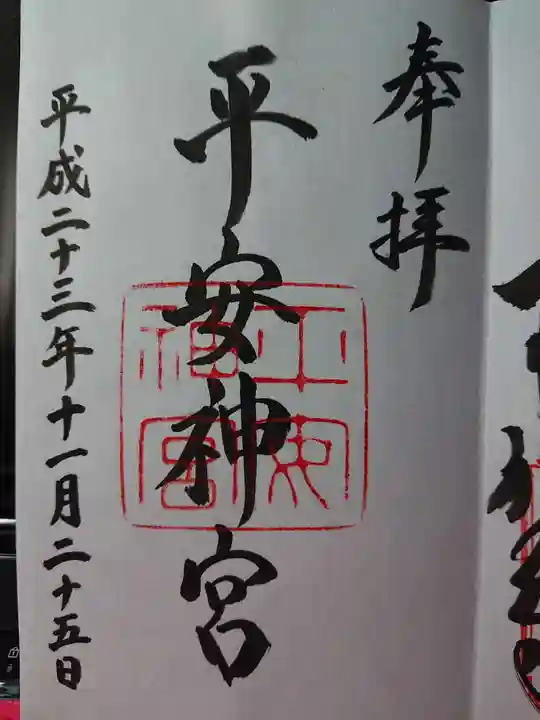 奉拝
平安神宮
平成二十三年十一月二十五日
平安神宮